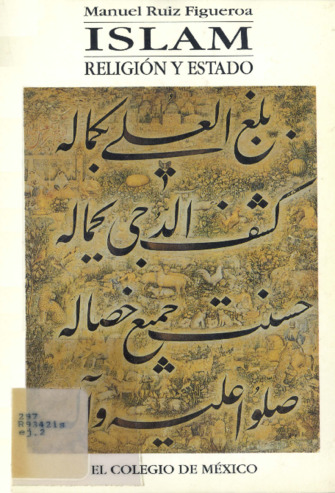 Manuel Ruiz Figueroa
ISLAM
RELIGIÓN Y ESTADO
بلغ العلى بكماله
كشف الدجى بجماله
حسنت جميع خصاله
صلوا عليه وآ
297
R9342is
ej.2
EL COLEGIO DE MÉXICO